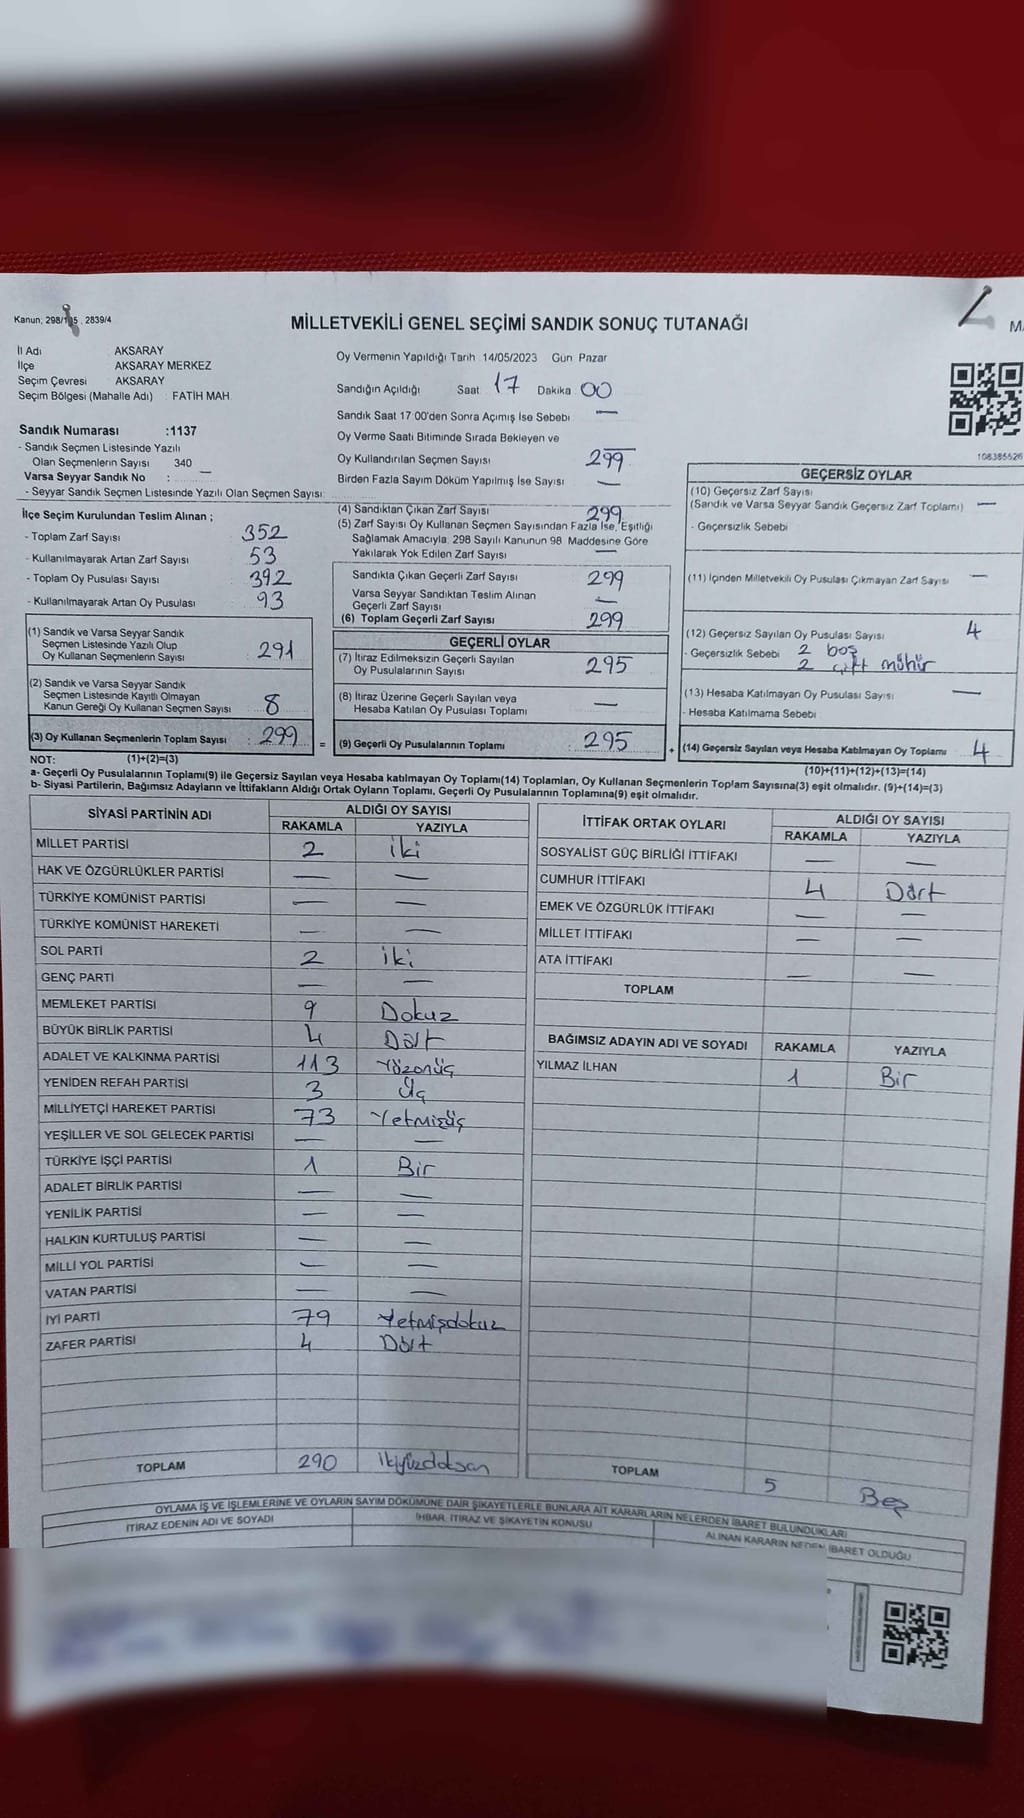 Kanun; 298/105, 2839/4
MİLLETVEKİLİ GENEL SEÇİMİ SANDIK SONUÇ TUTANAĞI
İl Adı AKSARAY
İlçe AKSARAY MERKEZ
Seçim Çevresi AKSARAY
Seçim Bölgesi (Mahalle Adı) : FATİH MAH.
Sandık Numarası :1137
- Sandık Seçmen Listesinde Yazılı
Olan Seçmenlerin Sayısı 340
Varsa Seyyar Sandık No : —
- Seyyar Sandık Seçmen Listesinde Yazılı Olan Seçmen Sayısı:
Oy Vermenin Yapıldığı Tarih 14/05/2023 Gün Pazar
Sandığın Açıldığı Saat 17 Dakika 00
Sandık Saat 17:00'den Sonra Açımış İse Sebebi —
Oy Verme Saati Bitiminde Sırada Bekleyen ve
Oy Kullandırılan Seçmen Sayısı 299
Birden Fazla Sayım Döküm Yapılmış İse Sayısı —
108385526
İlçe Seçim Kurulundan Teslim Alınan ;
- Toplam Zarf Sayısı 352
- Kullanılmayarak Artan Zarf Sayısı 53
- Toplam Oy Pusulası Sayısı 392
- Kullanılmayarak Artan Oy Pusulası 93
(1) Sandık ve Varsa Seyyar Sandık
Seçmen Listesinde Yazılı Olup
Oy Kullanan Seçmenlerin Sayısı 291
(2) Sandık ve Varsa Seyyar Sandık
Seçmen Listesinde Kayıtlı Olmayan
Kanun Gereği Oy Kullanan Seçmen Sayısı 8
(3) Oy Kullanan Seçmenlerin Toplam Sayısı : 299
(4) Sandıktan Çıkan Zarf Sayısı 299
(5) Zarf Sayısı Oy Kullanan Seçmen Sayısından Fazla İse, Eşitliği
Sağlamak Amacıyla, 298 Sayılı Kanunun 98. Maddesine Göre
Yakılarak Yok Edilen Zarf Sayısı —
Sandıkta Çıkan Geçerli Zarf Sayısı 299
Varsa Seyyar Sandıktan Teslim Alınan
Geçerli Zarf Sayısı —
(6) Toplam Geçerli Zarf Sayısı 299
GEÇERLİ OYLAR
(7) İtiraz Edilmeksizin Geçerli Sayılan
Oy Pusulalarının Sayısı 295
(8) İtiraz Üzerine Geçerli Sayılan veya
Hesaba Katılan Oy Pusulası Toplamı —
= (9) Geçerli Oy Pusulalarının Toplamı : 295
GEÇERSİZ OYLAR
(10) Geçersiz Zarf Sayısı
(Sandık ve Varsa Seyyar Sandık Geçersiz Zarf Toplamı) —
- Geçersizlik Sebebi
(11) İçinden Milletvekili Oy Pusulası Çıkmayan Zarf Sayısı —
(12) Geçersiz Sayılan Oy Pusulası Sayısı 4
- Geçersizlik Sebebi 2 boş
2 çift mühür
(13) Hesaba Katılmayan Oy Pusulası Sayısı —
- Hesaba Katılmama Sebebi
+ (14) Geçersiz Sayılan veya Hesaba Katılmayan Oy Toplamı 4
NOT: (1)+(2)=(3)
(10)+(11)+(12)+(13)=(14)
a- Geçerli Oy Pusulalarının Toplamı(9) ile Geçersiz Sayılan veya Hesaba katılmayan Oy Toplamı(14) Toplamları, Oy Kullanan Seçmenlerin Toplam Sayısına(3) eşit olmalıdır. (9)+(14)=(3)
b- Siyasi Partilerin, Bağımsız Adayların ve İttifakların Aldığı Ortak Oyların Toplamı, Geçerli Oy Pusulalarının Toplamına(9) eşit olmalıdır.
SİYASİ PARTİNİN ADI ALDIĞI OY SAYISI
RAKAMLA YAZIYLA
MİLLET PARTİSİ 2 iki
HAK VE ÖZGÜRLÜKLER PARTİSİ — —
TÜRKİYE KOMÜNİST PARTİSİ — —
TÜRKİYE KOMÜNİST HAREKETİ — —
SOL PARTİ 2 iki
GENÇ PARTİ — —
MEMLEKET PARTİSİ 9 Dokuz
BÜYÜK BİRLİK PARTİSİ 4 Dört
ADALET VE KALKINMA PARTİSİ 113 Yüzonüç
YENİDEN REFAH PARTİSİ 3 Üç
MİLLİYETÇİ HAREKET PARTİSİ 73 Yetmişüç
YEŞİLLER VE SOL GELECEK PARTİSİ — —
TÜRKİYE İŞÇİ PARTİSİ 1 Bir
ADALET BİRLİK PARTİSİ — —
YENİLİK PARTİSİ — —
HALKIN KURTULUŞ PARTİSİ — —
MİLLİ YOL PARTİSİ — —
VATAN PARTİSİ — —
İYİ PARTİ 79 Yetmişdokuz
ZAFER PARTİSİ 4 Dört
TOPLAM 290 ikiyüzdoksan
İTTİFAK ORTAK OYLARI ALDIĞI OY SAYISI
RAKAMLA YAZIYLA
SOSYALİST GÜÇ BİRLİĞİ İTTİFAKI — —
CUMHUR İTTİFAKI 4 Dört
EMEK VE ÖZGÜRLÜK İTTİFAKI — —
MİLLET İTTİFAKI — —
ATA İTTİFAKI — —
TOPLAM
BAĞIMSIZ ADAYIN ADI VE SOYADI RAKAMLA YAZIYLA
YILMAZ İLHAN 1 Bir
TOPLAM 5 Beş
OYLAMA İŞ VE İŞLEMLERİNE VE OYLARIN SAYIM DÖKÜMÜNE DAİR ŞİKAYETLERLE BUNLARA AİT KARARLARIN NELERDEN İBARET BULUNDUKLARI
İTİRAZ EDENİN ADI VE SOYADI İHBAR, İTİRAZ VE ŞİKAYETİN KONUSU ALINAN KARARIN NEDEN İBARET OLDUĞU